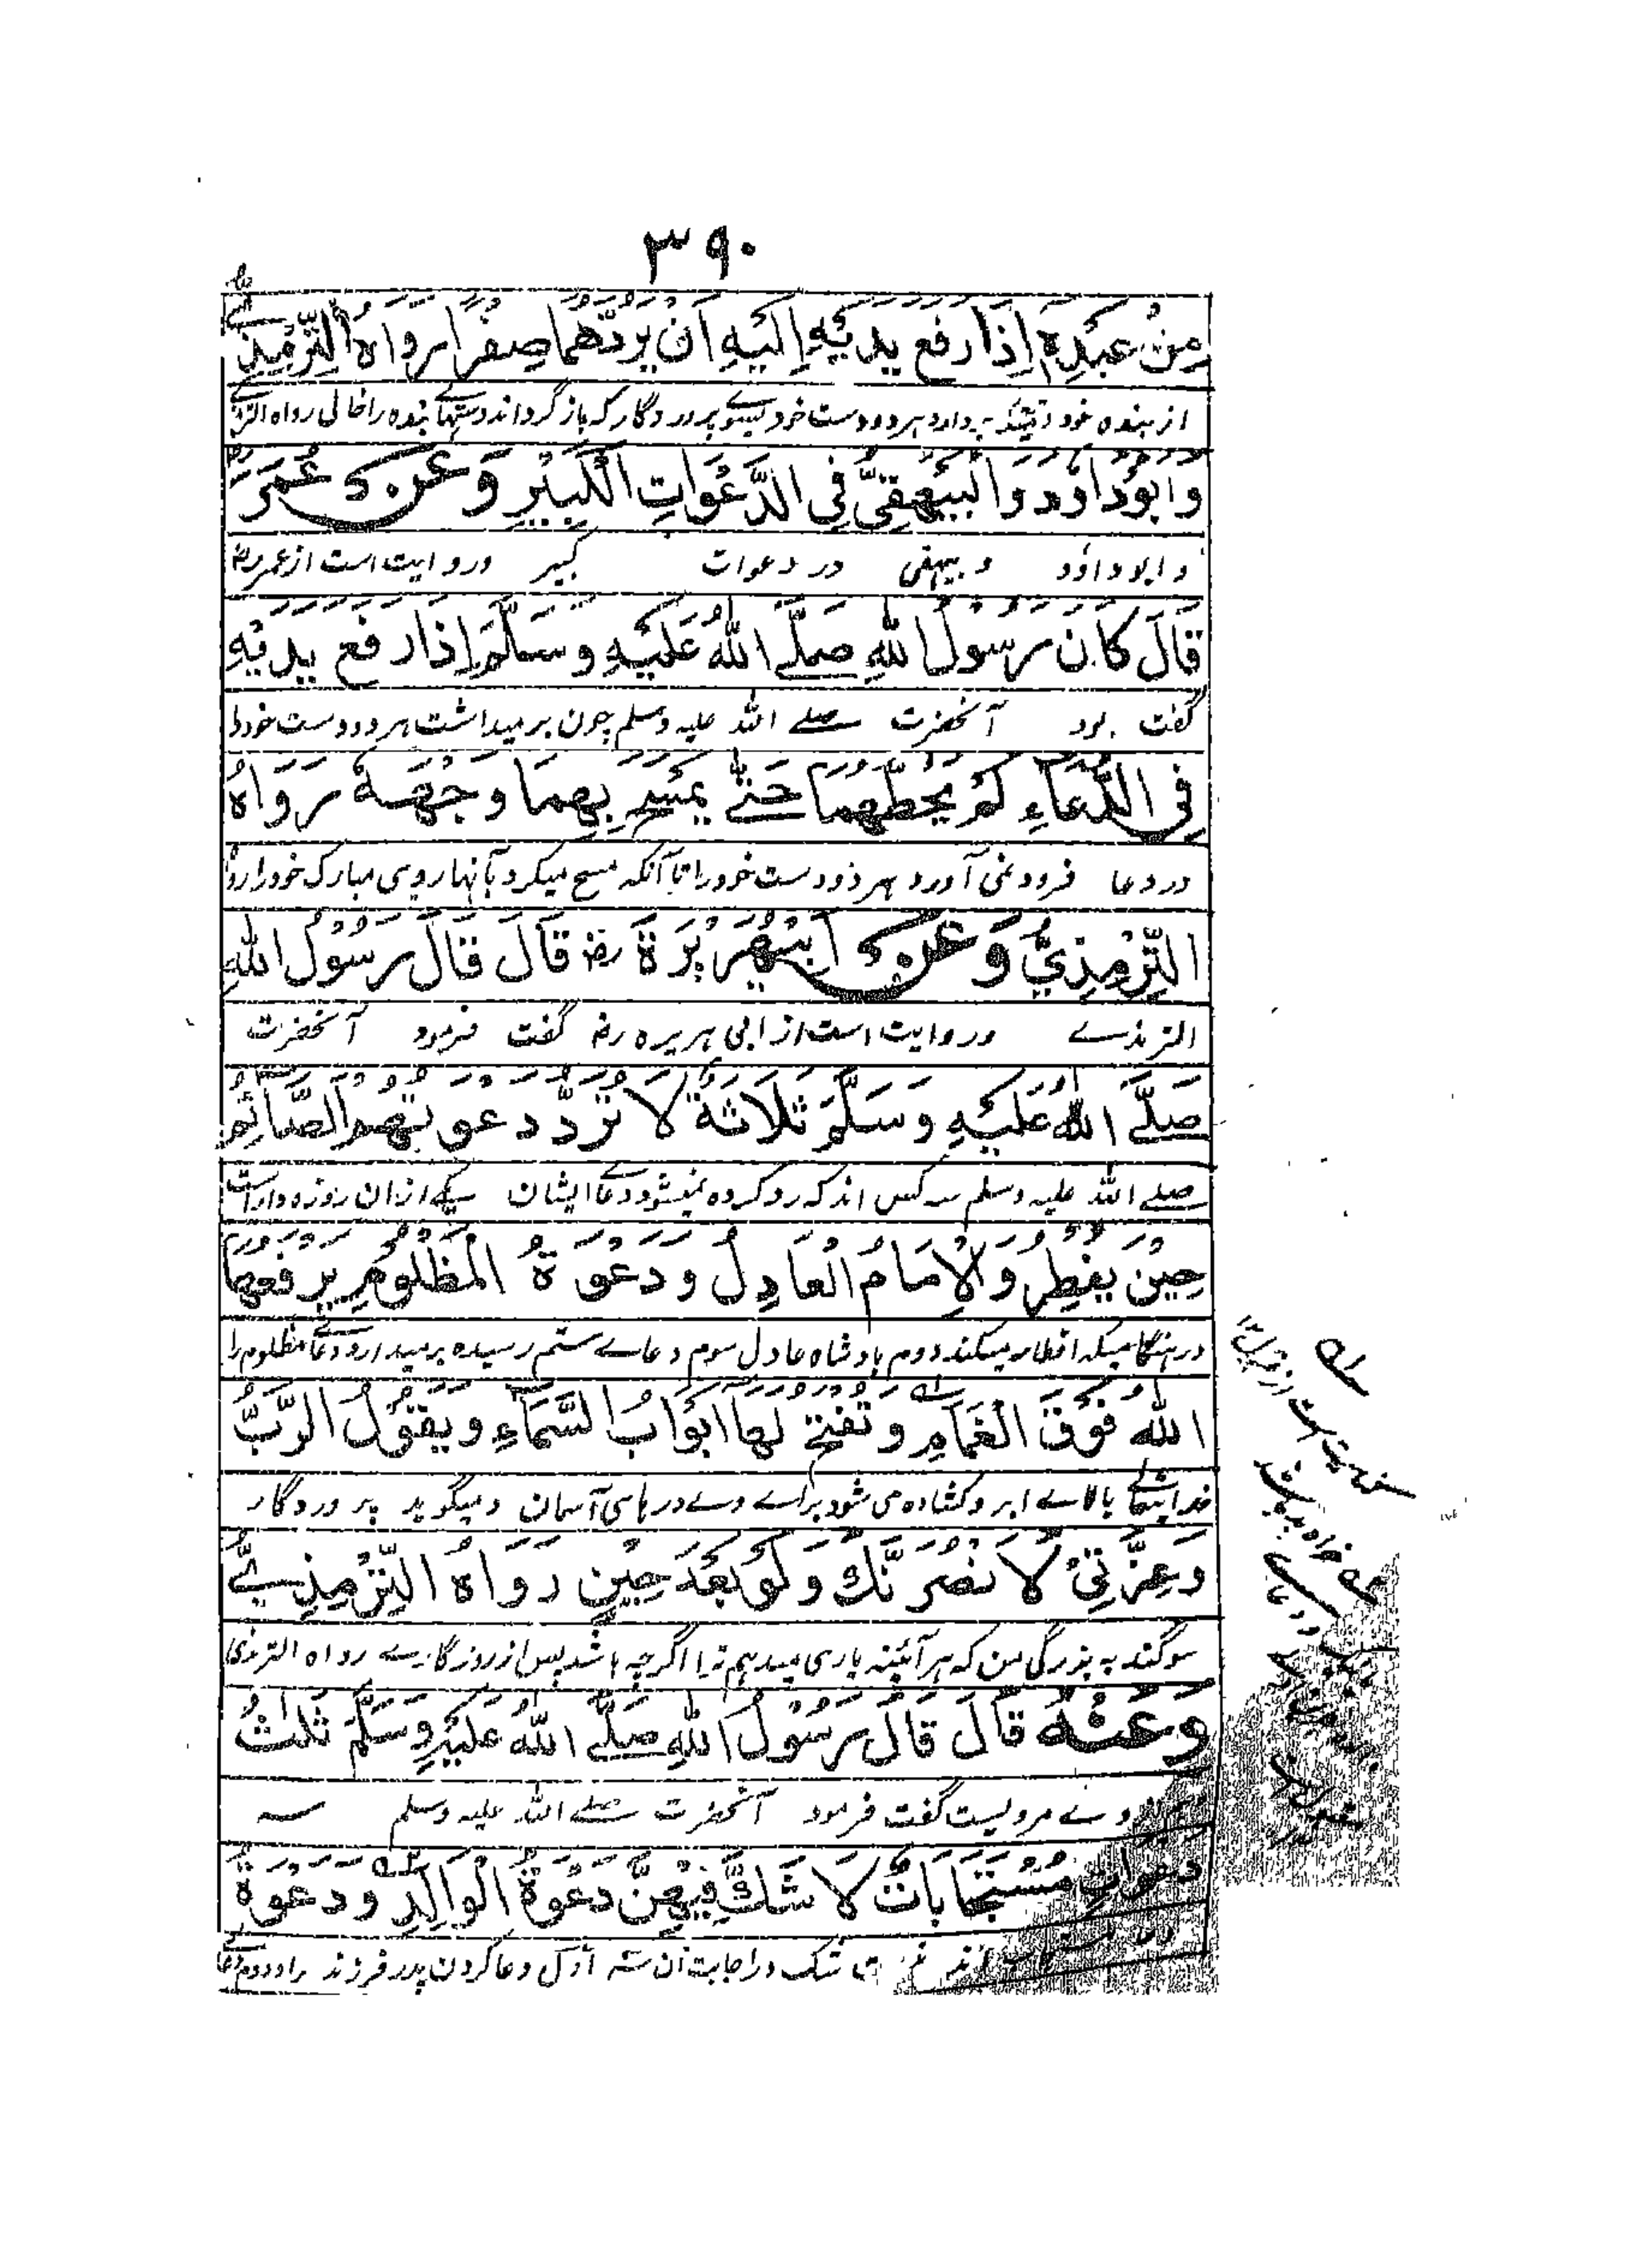 ۳۹۰
مِنْ عَبْدِهٖ إِذَا رَفَعَ يَدَيْهِ إِلَيْهِ أَنْ يَرُدَّهُمَا صِفْرًا رَوَاهُ التِّرْمِذِيُّ
از بنده خود وقتیکه بردارد هر دو دست خود بسوے پروردگار که باز گرداند دستهاے بنده را خالی رواه الترمذی
وَأَبُو دَاوُدَ وَالْبَيْهَقِيُّ فِي الدَّعَوَاتِ الْكَبِيْرِ وَعَنْ عُمَرَ رض
و ابو داؤد و بیهقی در دعوات کبیر و روایت است از عمر رض
قَالَ كَانَ رَسُوْلُ اللّٰهِ صَلَّے اللّٰهُ عَلَيْهِ وَسَلَّمَ إِذَا رَفَعَ يَدَيْهِ
گفت بود آنحضرت صلے الله علیه وسلم چون برمیداشت هر دو دست خود را
فِي الدُّعَاءِ لَمْ يَحُطَّهُمَا حَتّٰے يَمْسَحَ بِهِمَا وَجْهَهٗ رَوَاهُ
در دعا فرود نمی آورد هر دو دست خود را تا آنکه مسح میکرد بآنها روی مبارک خود را رواه
التِّرْمِذِيُّ وَعَنْ أَبِيْ هُرَيْرَةَ رض قَالَ قَالَ رَسُوْلُ اللّٰهِ
الترمذے و روایت است از ابی هریره رض گفت فرمود آنحضرت
صَلَّے اللّٰهُ عَلَيْهِ وَسَلَّمَ ثَلَاثَةٌ لَا تُرَدُّ دَعْوَتُهُمُ الصَّائِمُ
صلے الله علیه وسلم سه کس اند که رد کرده نمیشود دعاے ایشان یکے ازان روزه دار است
حِيْنَ يُفْطِرُ وَالْإِمَامُ الْعَادِلُ وَدَعْوَةُ الْمَظْلُوْمِ يَرْفَعُهَا
در هنگامیکه افطار میکند دوم بادشاه عادل سوم دعاے ستم رسیده برمیدارد دعاے مظلوم را
اللّٰهُ فَوْقَ الْغَمَامِ وَتُفْتَحُ لَهَا أَبْوَابُ السَّمَآءِ وَيَقُوْلُ الرَّبُّ
خدایتعالے بالاے ابر و کشاده می شود براے وے درهای آسمان و میگوید پروردگار
وَعِزَّتِيْ لَأَنْصُرَنَّكَ وَلَوْ بَعْدَ حِيْنٍ رَوَاهُ التِّرْمِذِيُّ
سوگند به بزرگی من که هر آئینه یاری میدهم ترا اگرچه باشد پس از روزگارے رواه الترمذی
وَعَنْهُ قَالَ قَالَ رَسُوْلُ اللّٰهِ صَلَّے اللّٰهُ عَلَيْهِ وَسَلَّمَ ثَلٰثُ
وے مرویست گفت فرمود آنحضرت صلے الله علیه وسلم سه
دَعَوَاتٍ مُسْتَجَابَاتٌ لَا شَكَّ فِيْهِنَّ دَعْوَةُ الْوَالِدِ وَدَعْوَةُ
اند شک در اجابت آن سه اول دعا کردن پدر فرزند را و دوم دعاے